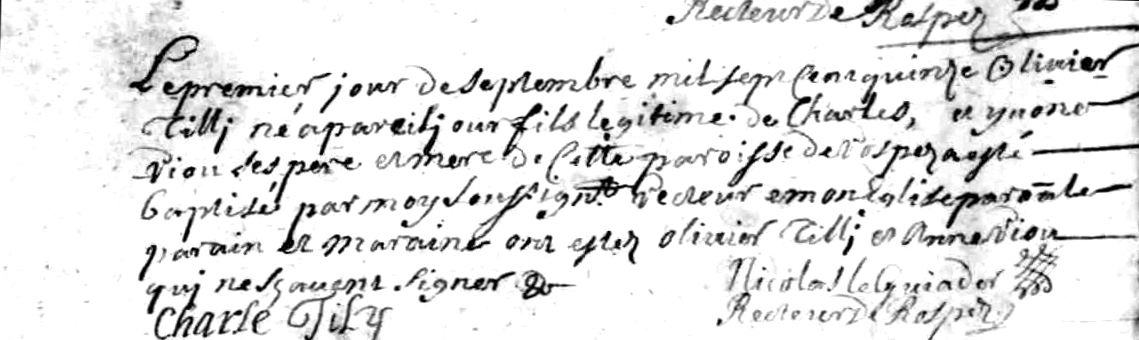 Recteur De Rospez
Le premier jour de septembre mil sept cent quinze Olivier
Tillj né a pareil jour fils legitime de Charles, et yvone
Riou ses pere et mere de cette paroisse de Rospez a esté
baptisé par moy soussigné Recteur en mon eglise paroale
parain et maraine ont estez olivier Tillj et Anne Riou
quj ne sçavent signer &
Charle Tily
Nicolas le
Recteur De Rospez